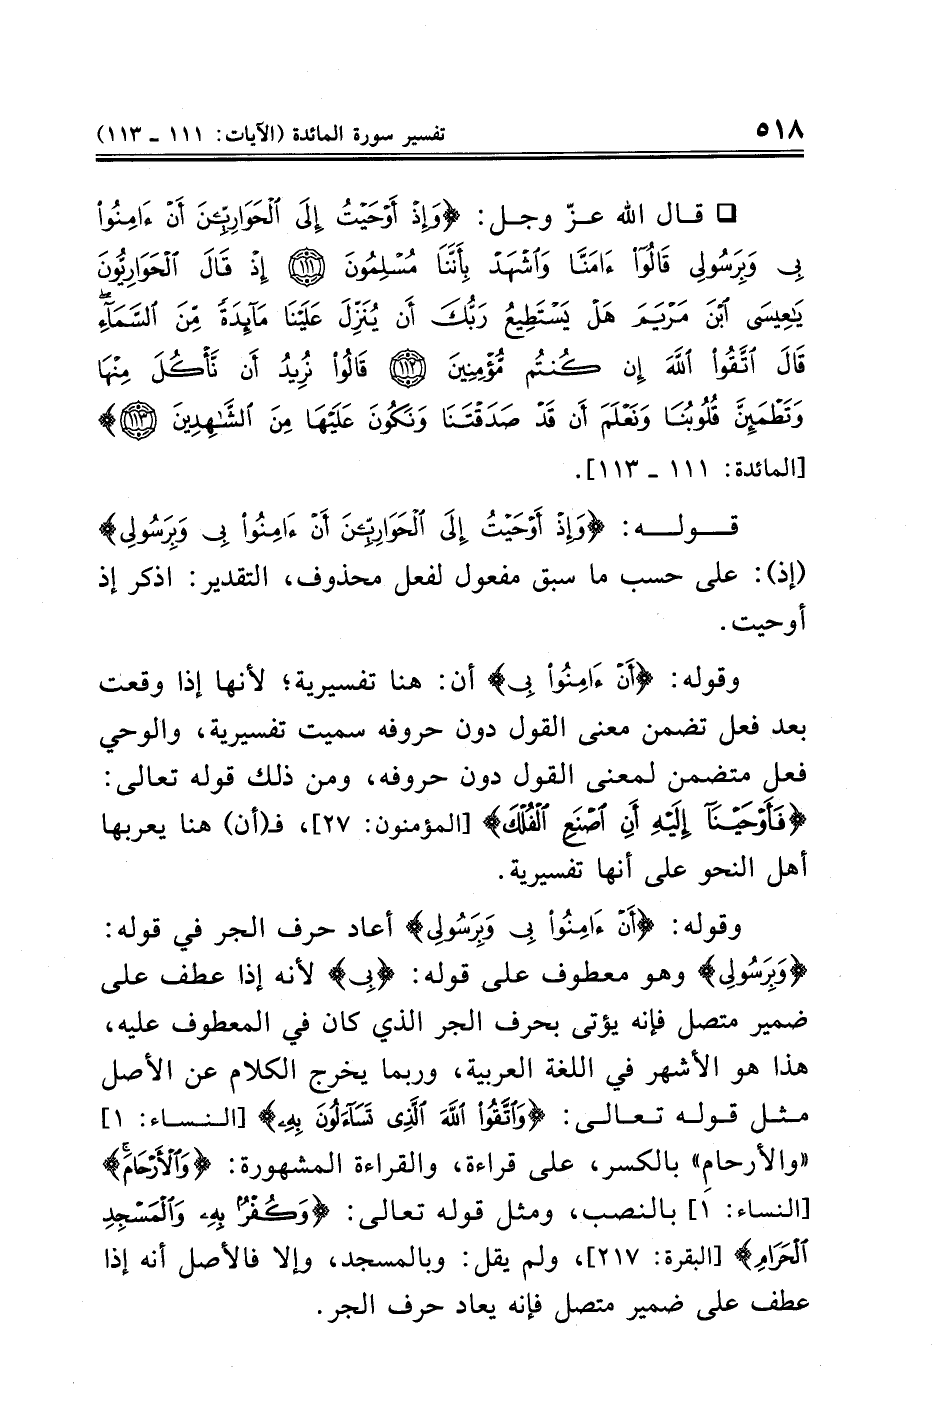 ٥١٨ تفسير سورة المائدة (الآيات: ١١١ ـ ١١٣)
❑ قال الله عزّ وجل: ﴿وَإِذْ أَوْحَيْتُ إِلَى ٱلْحَوَارِيِّـۧنَ أَنْ ءَامِنُوا۟
بِى وَبِرَسُولِى قَالُوٓا۟ ءَامَنَّا وَٱشْهَدْ بِأَنَّنَا مُسْلِمُونَ ١١١ إِذْ قَالَ ٱلْحَوَارِيُّونَ
يَٰعِيسَى ٱبْنَ مَرْيَمَ هَلْ يَسْتَطِيعُ رَبُّكَ أَن يُنَزِّلَ عَلَيْنَا مَآئِدَةً مِّنَ ٱلسَّمَآءِۖ
قَالَ ٱتَّقُوا۟ ٱللَّهَ إِن كُنتُم مُّؤْمِنِينَ ١١٢ قَالُوا۟ نُرِيدُ أَن نَّأْكُلَ مِنْهَا
وَتَطْمَئِنَّ قُلُوبُنَا وَنَعْلَمَ أَن قَدْ صَدَقْتَنَا وَنَكُونَ عَلَيْهَا مِنَ ٱلشَّٰهِدِينَ ١١٣﴾
[المائدة: ١١١ ـ ١١٣].
قـولـه: ﴿وَإِذْ أَوْحَيْتُ إِلَى ٱلْحَوَارِيِّـۧنَ أَنْ ءَامِنُوا۟ بِى وَبِرَسُولِى﴾
(إذ): على حسب ما سبق مفعول لفعل محذوف، التقدير: اذكر إذ
أوحيت.
وقوله: ﴿أَنْ ءَامِنُوا۟ بِى﴾ أن: هنا تفسيرية؛ لأنها إذا وقعت
بعد فعل تضمن معنى القول دون حروفه سميت تفسيرية، والوحي
فعل متضمن لمعنى القول دون حروفه، ومن ذلك قوله تعالى:
﴿فَأَوْحَيْنَآ إِلَيْهِ أَنِ ٱصْنَعِ ٱلْفُلْكَ﴾ [المؤمنون: ٢٧]، فـ(أن) هنا يعربها
أهل النحو على أنها تفسيرية.
وقوله: ﴿أَنْ ءَامِنُوا۟ بِى وَبِرَسُولِى﴾ أعاد حرف الجر في قوله:
﴿وَبِرَسُولِى﴾ وهو معطوف على قوله: ﴿بِى﴾ لأنه إذا عطف على
ضمير متصل فإنه يؤتى بحرف الجر الذي كان في المعطوف عليه،
هذا هو الأشهر في اللغة العربية، وربما يخرج الكلام عن الأصل
مثل قوله تعالى: ﴿وَٱتَّقُوا۟ ٱللَّهَ ٱلَّذِى تَسَآءَلُونَ بِهِۦ﴾ [النساء: ١]
«والأرحامِ» بالكسر، على قراءة، والقراءة المشهورة: ﴿وَٱلْأَرْحَامَۚ﴾
[النساء: ١] بالنصب، ومثل قوله تعالى: ﴿وَكُفْرٌۢ بِهِۦ وَٱلْمَسْجِدِ
ٱلْحَرَامِ﴾ [البقرة: ٢١٧]، ولم يقل: وبالمسجد، وإلا فالأصل أنه إذا
عطف على ضمير متصل فإنه يعاد حرف الجر.